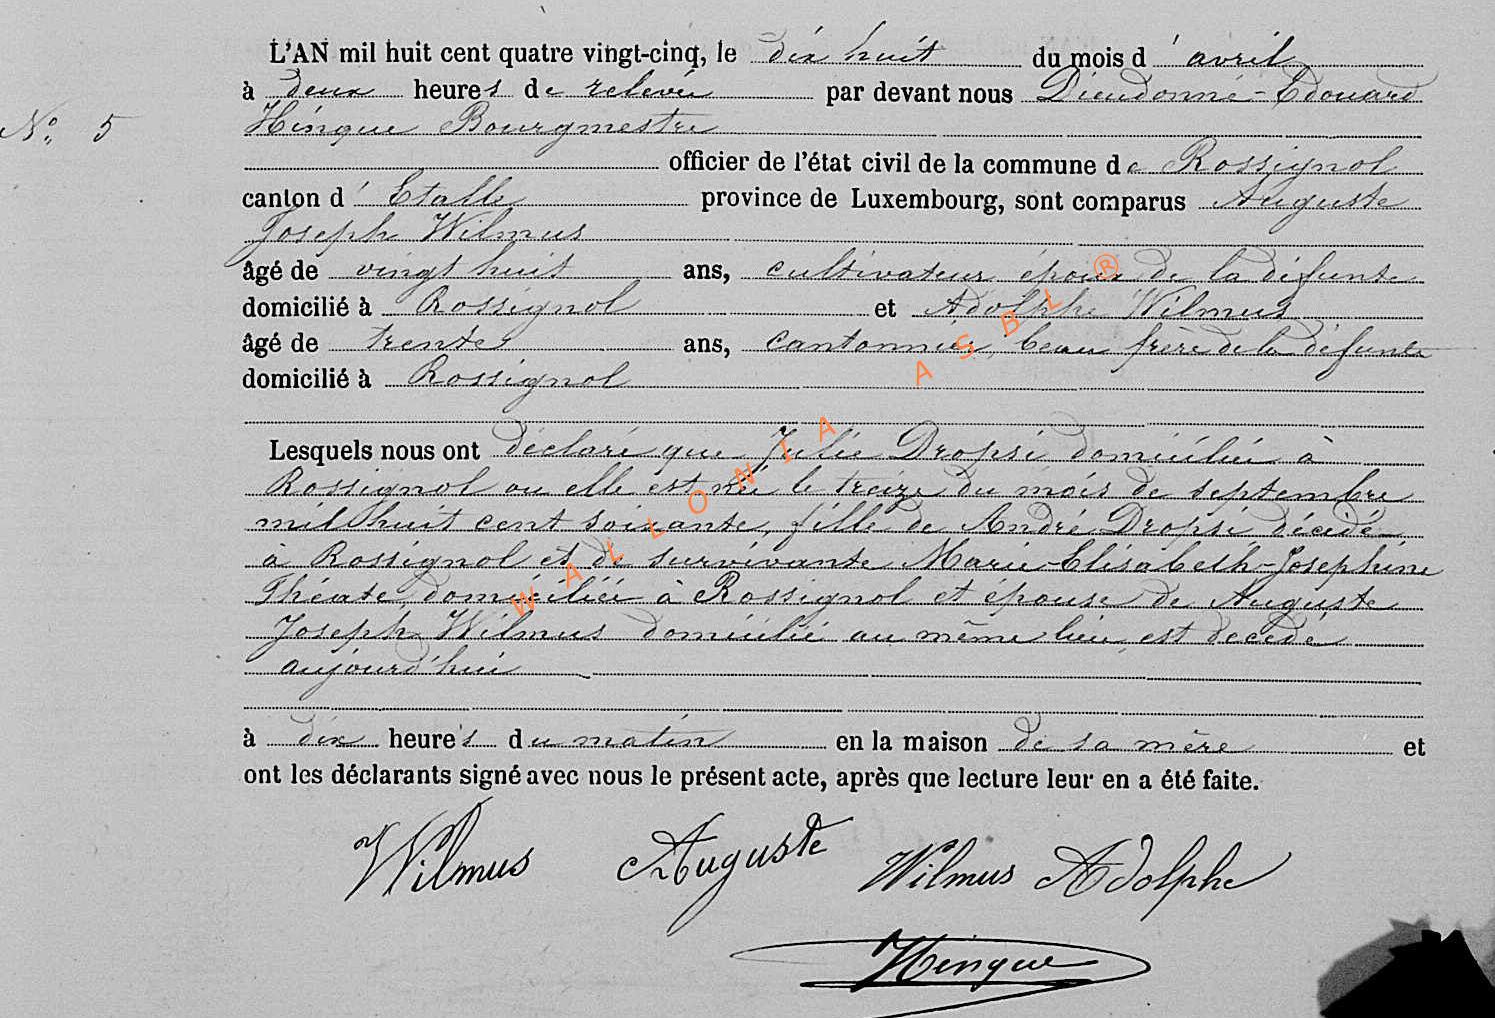 L'AN mil huit cent quatre vingt-cinq, le dix huit du mois d'avril
à deux heures de relevée par devant nous Dieudonné-Edouard
N° 5 Hinque Bourgmestre
officier de l'état civil de la commune de Rossignol
canton d'Etalle province de Luxembourg, sont comparus Auguste
Joseph Wilmus
âgé de vingt huit ans, cultivateur époux de la défunte
domicilié à Rossignol et Adolphe Wilmus
âgé de trente ans, cantonnier, beau frère de la défunte
domicilié à Rossignol
Lesquels nous ont déclaré que Julie Dropsi domiciliée à
Rossignol ou elle est née le treize du mois de septembre
mil huit cent soixante, fille de André Dropsi décédé
à Rossignol et de survivante Marie-Elisabeth-Josephine
Théate, domiciliée à Rossignol et épouse de Auguste
Joseph Wilmus domicilié au même lieu, est décédé
aujourd'hui
à dix heures du matin en la maison de sa mère et
ont les déclarants signé avec nous le présent acte, après que lecture leur en a été faite.
Wilmus Auguste Wilmus Adolphe
Hinque
WALLONIA ASBL ®